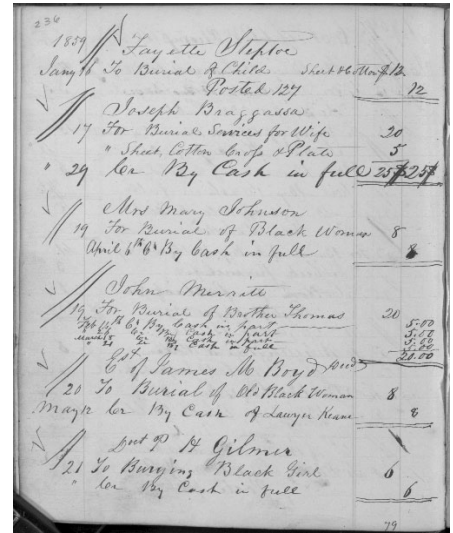 236
1859 Fayette Steptoe
Jany 16 To Burial of Child Sheet & Cotton $12
Posted 127 12
Joseph Bragassa
17 For Burial Services for Wife 20
" Sheet, Cotton Cross & Plate 5
" 29 Cr By Cash in full 25 $25
Mrs Mary Johnson
19 For Burial of Black Woman 8
April 6th Cr By Cash in full 8
John Merritt
19 For Burial of Brother Thomas 20
Feb Cr By Cash in part 5.00
Cr By Cash in part 5.00
March Cr By Cash in part 5.00
Cr By Cash in full 5.00
20.00
Est of James M Boyd Decd
20 To Burial of Old Black Woman 8
May 12 Cr By Cash of Lawyer Keane 8
H Gilmer
21 To Burying Black Girl 6
" Cr By Cash in full 6
79